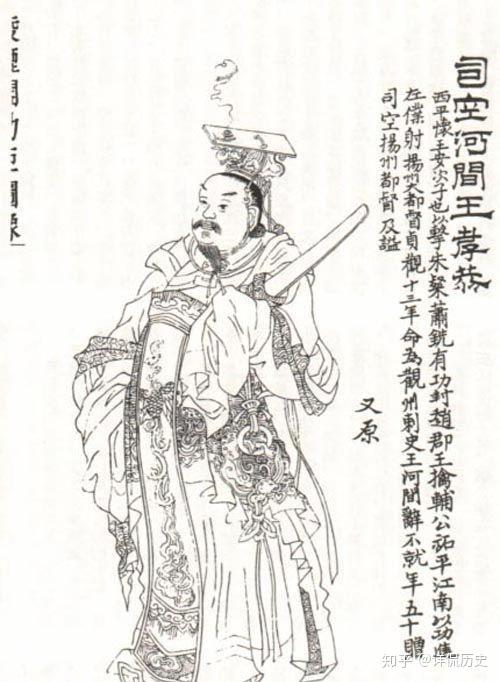 司空河間王孝恭
西平懷王安次子也以擊朱粲蕭銑有功封趙郡王擒輔公祏平江南以功進
左僕射揚州大都督貞觀十三年命為觀州刺史王河間辭不就年五十贈
司空揚州都督及謚
又原
凌煙閣功臣圖像
知乎 @详侃历史